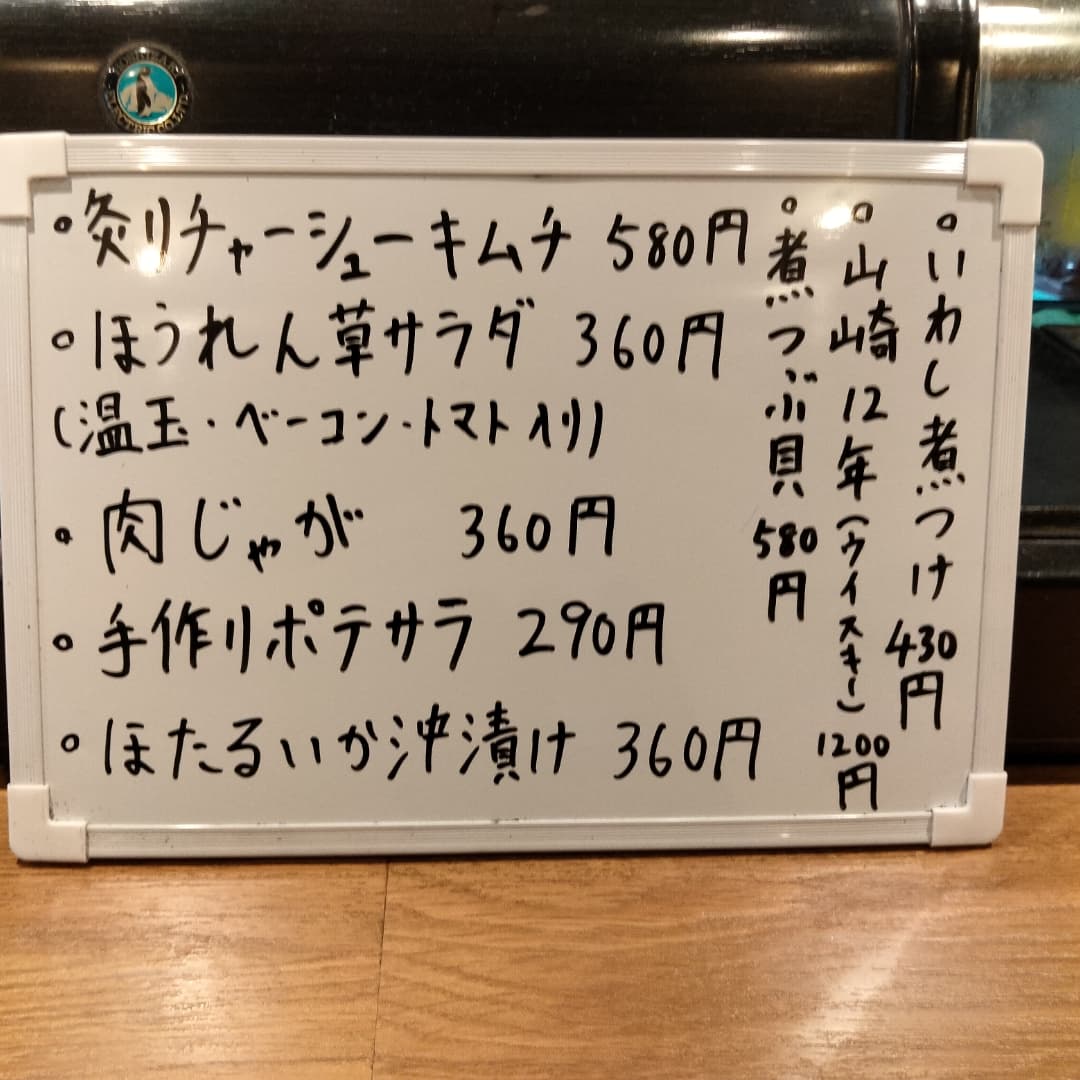 。炙りチャーシューキムチ 580円
。ほうれん草サラダ 360円
(温玉・ベーコン・トマト入り)
。肉じゃが 360円
。手作りポテサラ 290円
。ほたるいか沖漬け 360円
。いわし煮つけ 430円
。山崎12年(ウイスキー) 1200円
。煮つぶ貝 580円